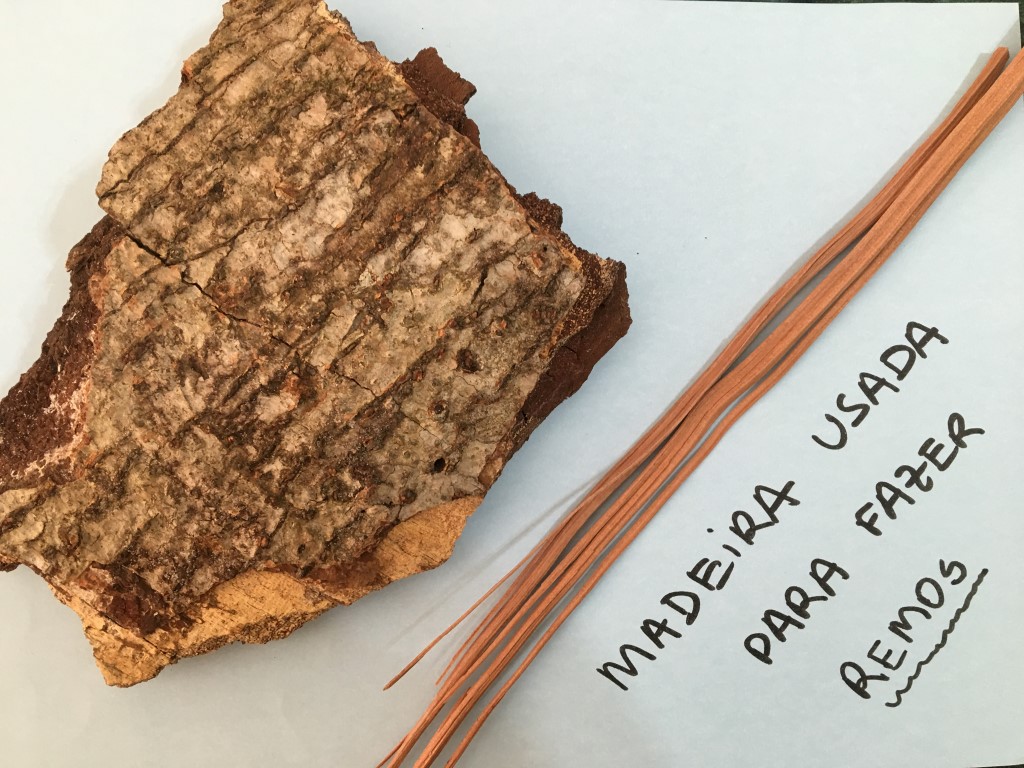 MADEiRA USADA
PARA FAZER
REMOS